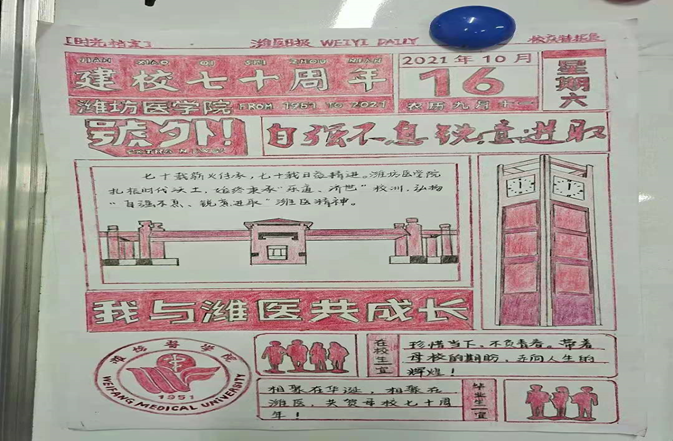 [时光档案]
潍医日报 WEIYI DAILY
校庆特长版
JIAN XIAO QI SHI ZHOU NIAN
建校七十周年
2021年10月
16
星期六
潍坊医学院 FROM 1951 TO 2021
农历九月十一
號外!
自强不息 锐意进取
七十载薪火传承,七十载日益精进。潍坊医学院
扎根时代沃土,始终秉承“乐道、济世”校训,弘扬
“自强不息、锐意进取”潍医精神。
我与潍医共成长
潍坊医学院
WEIFANG MEDICAL UNIVERSITY
1951
在校生宜
珍惜当下,不负青春。带着
母校的期盼,走向人生的
辉煌!
相聚在华诞,相聚在
潍医,共贺母校七十周
年!
毕业生宜